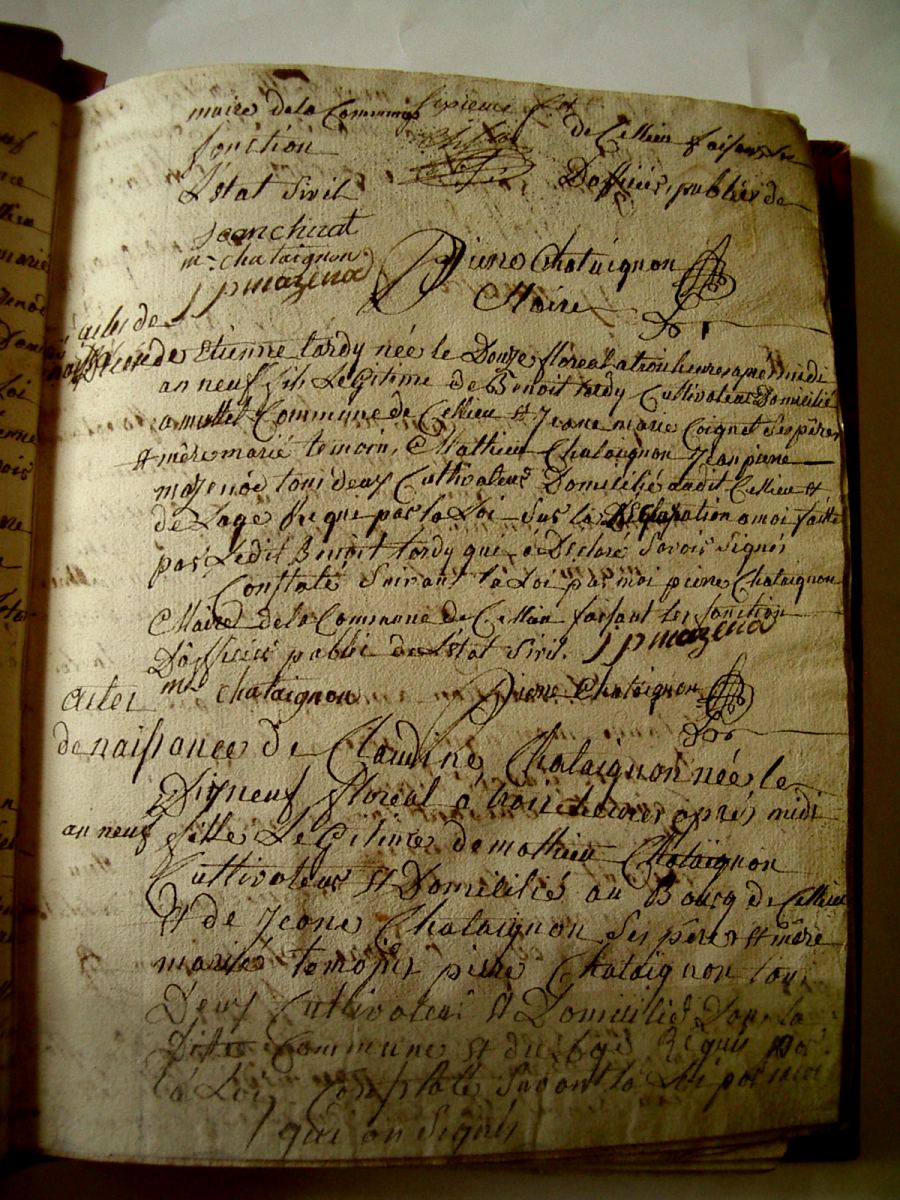 maire de la Commune de Cellieu faisant les
fonction
L'Etat Sivil D'officier public de
jean chirat
m. chataignon Pierre Chataignon
j p mazenod Maire
actes de
naissance de Etienne tardy née le Douze floreal a trois heures aprés midi
an neuf fils Legitime de Benoit tardy Cultivateur Domicilié
a mullet Commune de Cellieu et Jeane marie Coignet Ses pere
et mère marié temoin, Mathieu Chataignon Jean piere
mazenod tout deux Cultivateur Domicilié audit Cellieu et
de Lage Requi par la Loi Sur la Declaration a moi faitte
par Ledit Benoit tardy qui a Declaré Savoir Signér
Constaté Suivant la Loi par moi pierre Chataignon
Maire de la Commune de Cellieu faisant les fonction
D'officier public de L'etat Sivil. j p mazenod
m. chataignon Pierre Chataignon
actes
de naissance de Claudine Chataignon née le
Dixneuf floreal a trois heures aprés midi
an neuf fille Legitime de mathieu Chataignon
Cultivateur et Domicilié au Bourg de Cellieu
et de Jeane Chataignon Ses pere et mère
mariés temoins piere Chataignon tout
Deux Cultivateur et Domicilié Dans la
Ditte Commune et de Lage Requis par
la Loi Constaté Suivant la Loi par moi
qui on Signés